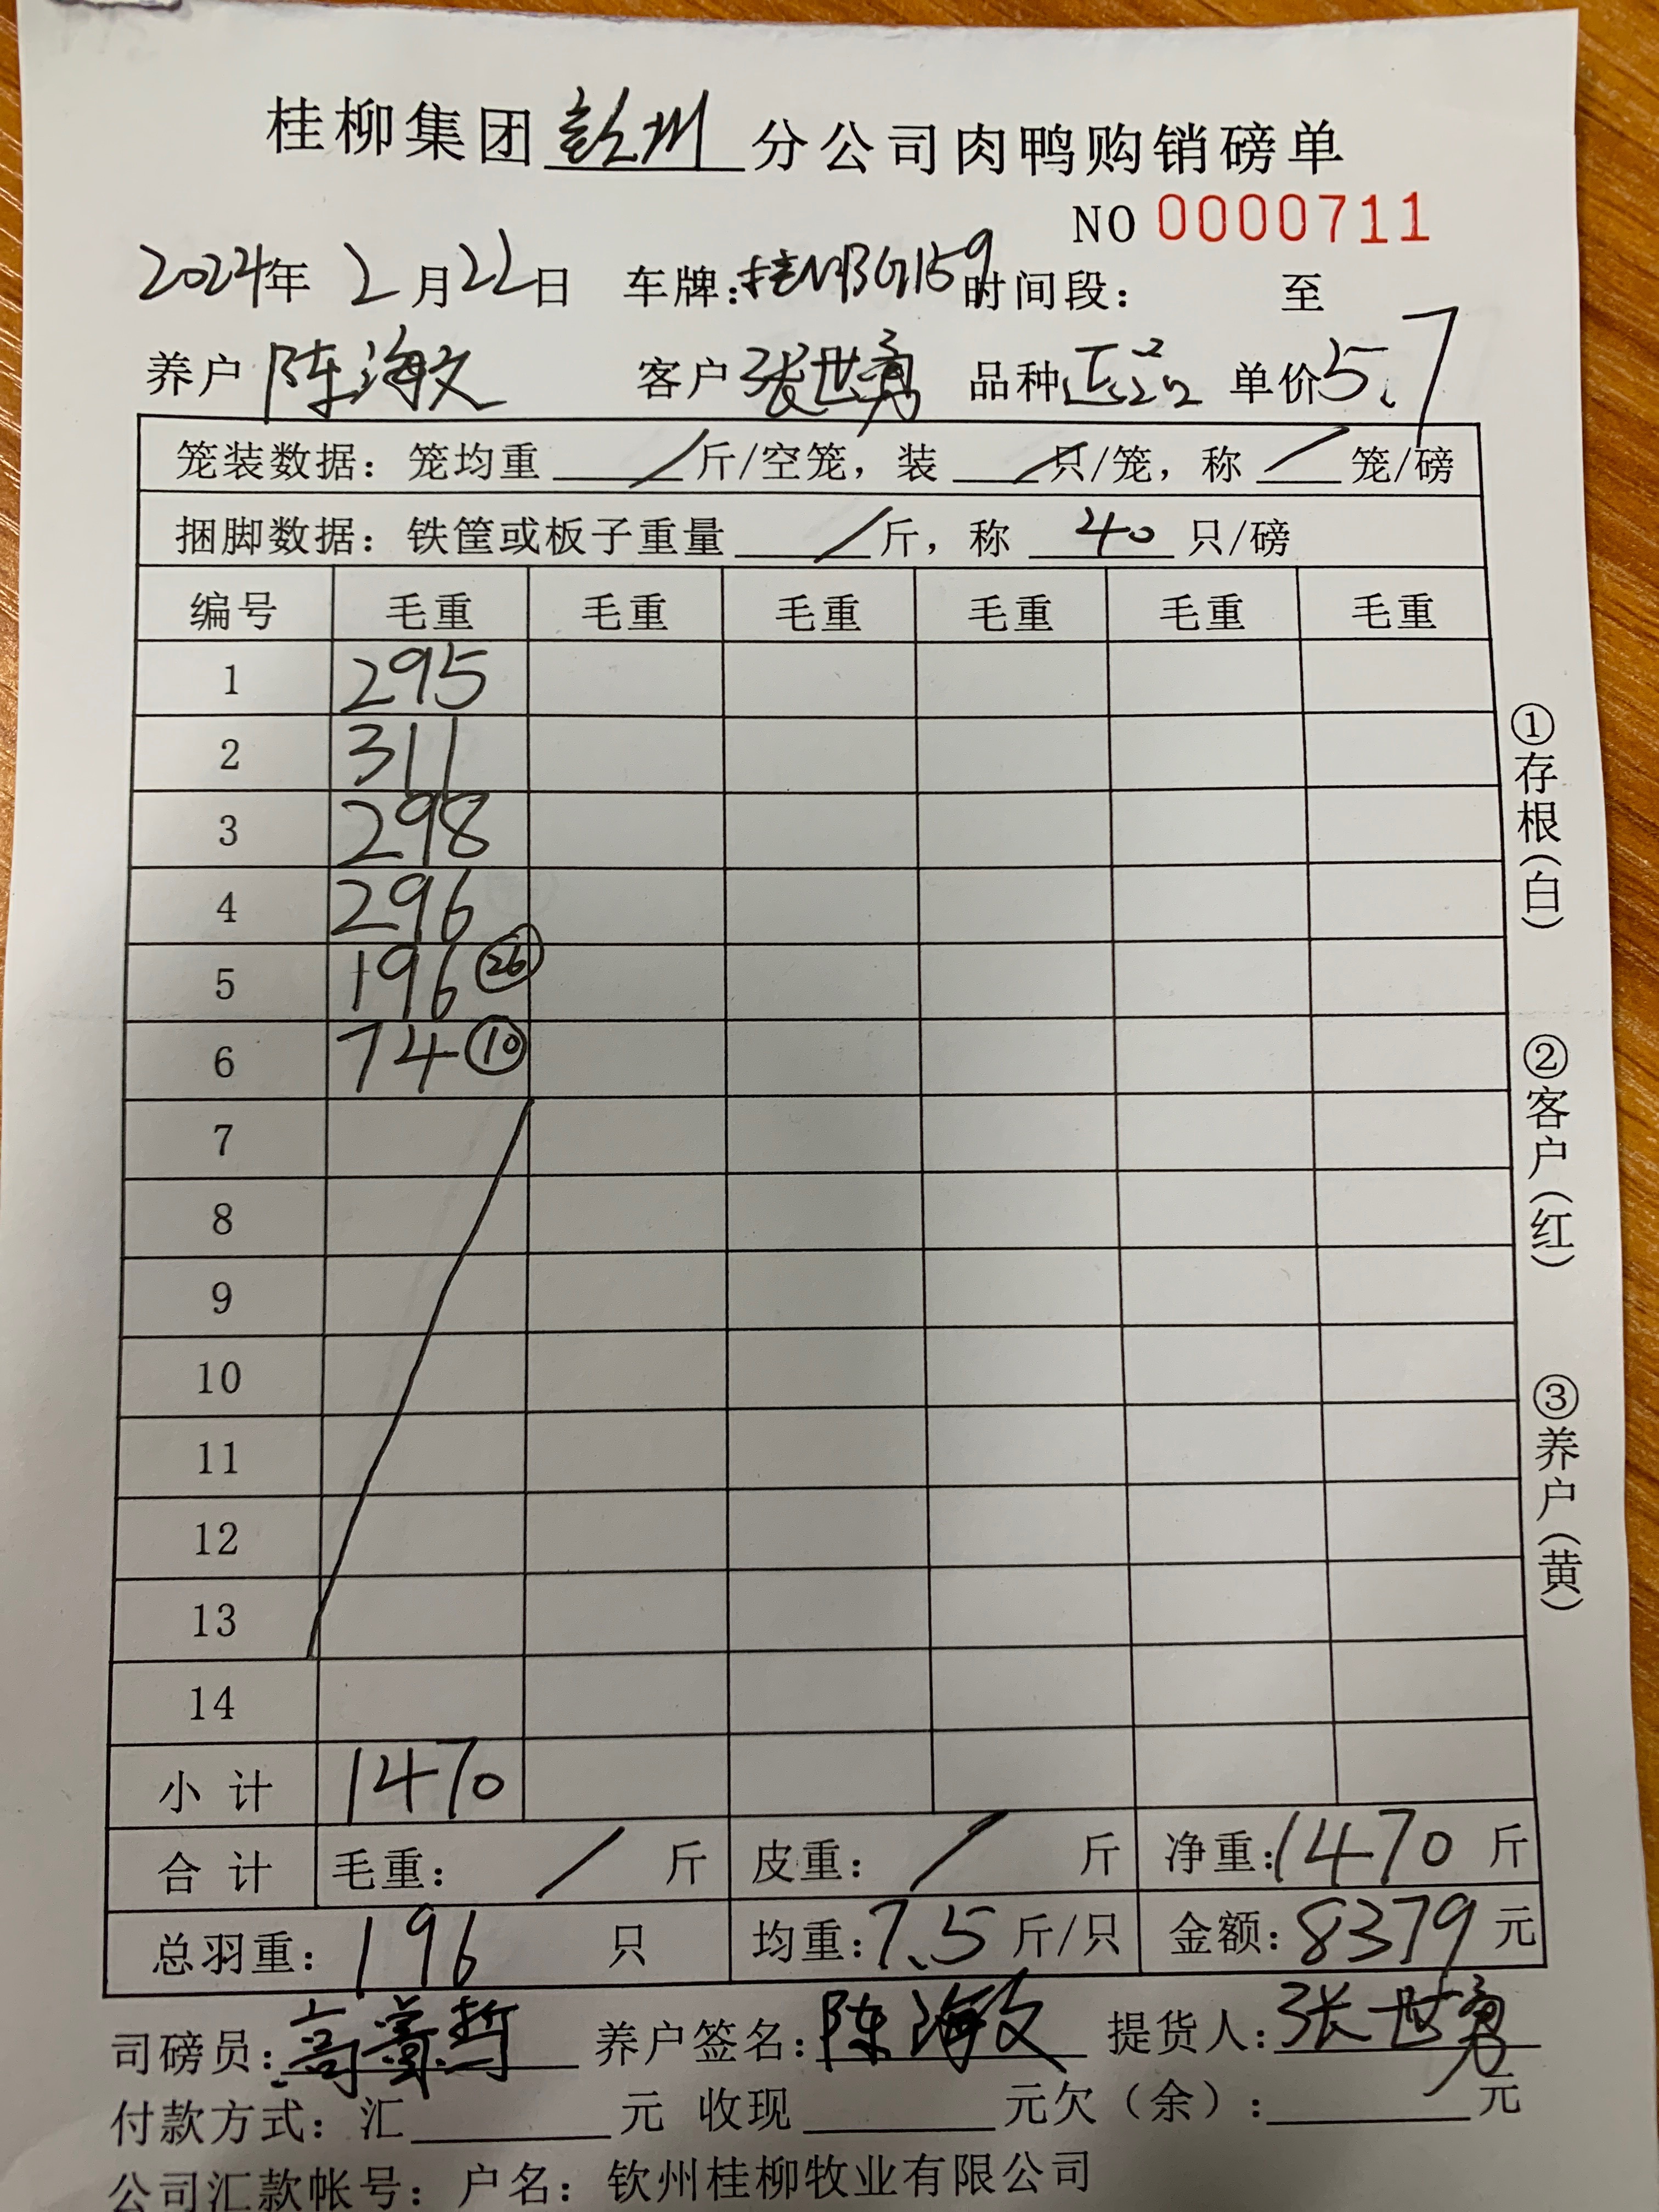 桂柳集团彭州分公司肉鸭购销磅单
NO 0000711
2024年 2月22日 车牌:桂NBG159 时间段: 至
养户 陈海文 客户 张世勇 品种 正品 单价 5.7
笼装数据: 笼均重 / 斤/空笼, 装 / 只/笼, 称 / 笼/磅
捆脚数据: 铁筐或板子重量 / 斤, 称 40 只/磅
编号 毛重 毛重 毛重 毛重 毛重 毛重
1 295
2 311
3 298
4 296
5 196 ㉖
6 74 ⑩
7
8
9
10
11
12
13
14
小计 1470
合计 毛重: / 斤 皮重: / 斤 净重:1470 斤
总羽重: 196 只 均重:7.5 斤/只 金额:8379 元
司磅员: 养户签名:陈海文 提货人:张世勇
付款方式: 汇 元 收现 元欠(余): 元
公司汇款帐号: 户名: 钦州桂柳牧业有限公司
①存根(白)
②客户(红)
③养户(黄)